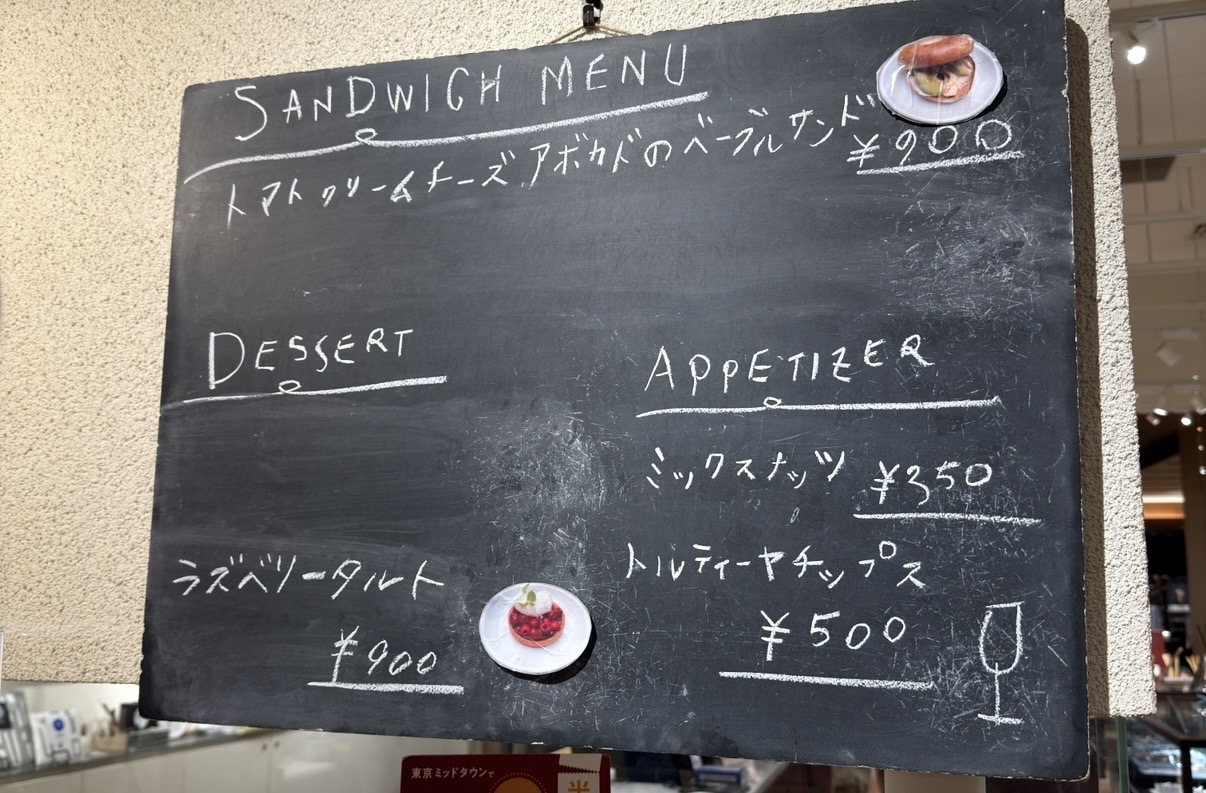 SANDWICH MENU
トマトクリームチーズアボカドのベーグルサンド ¥900
DESSERT
ラズベリータルト
¥900
APPETIZER
ミックスナッツ ¥350
トルティーヤチップス
¥500
東京ミッドタウンで